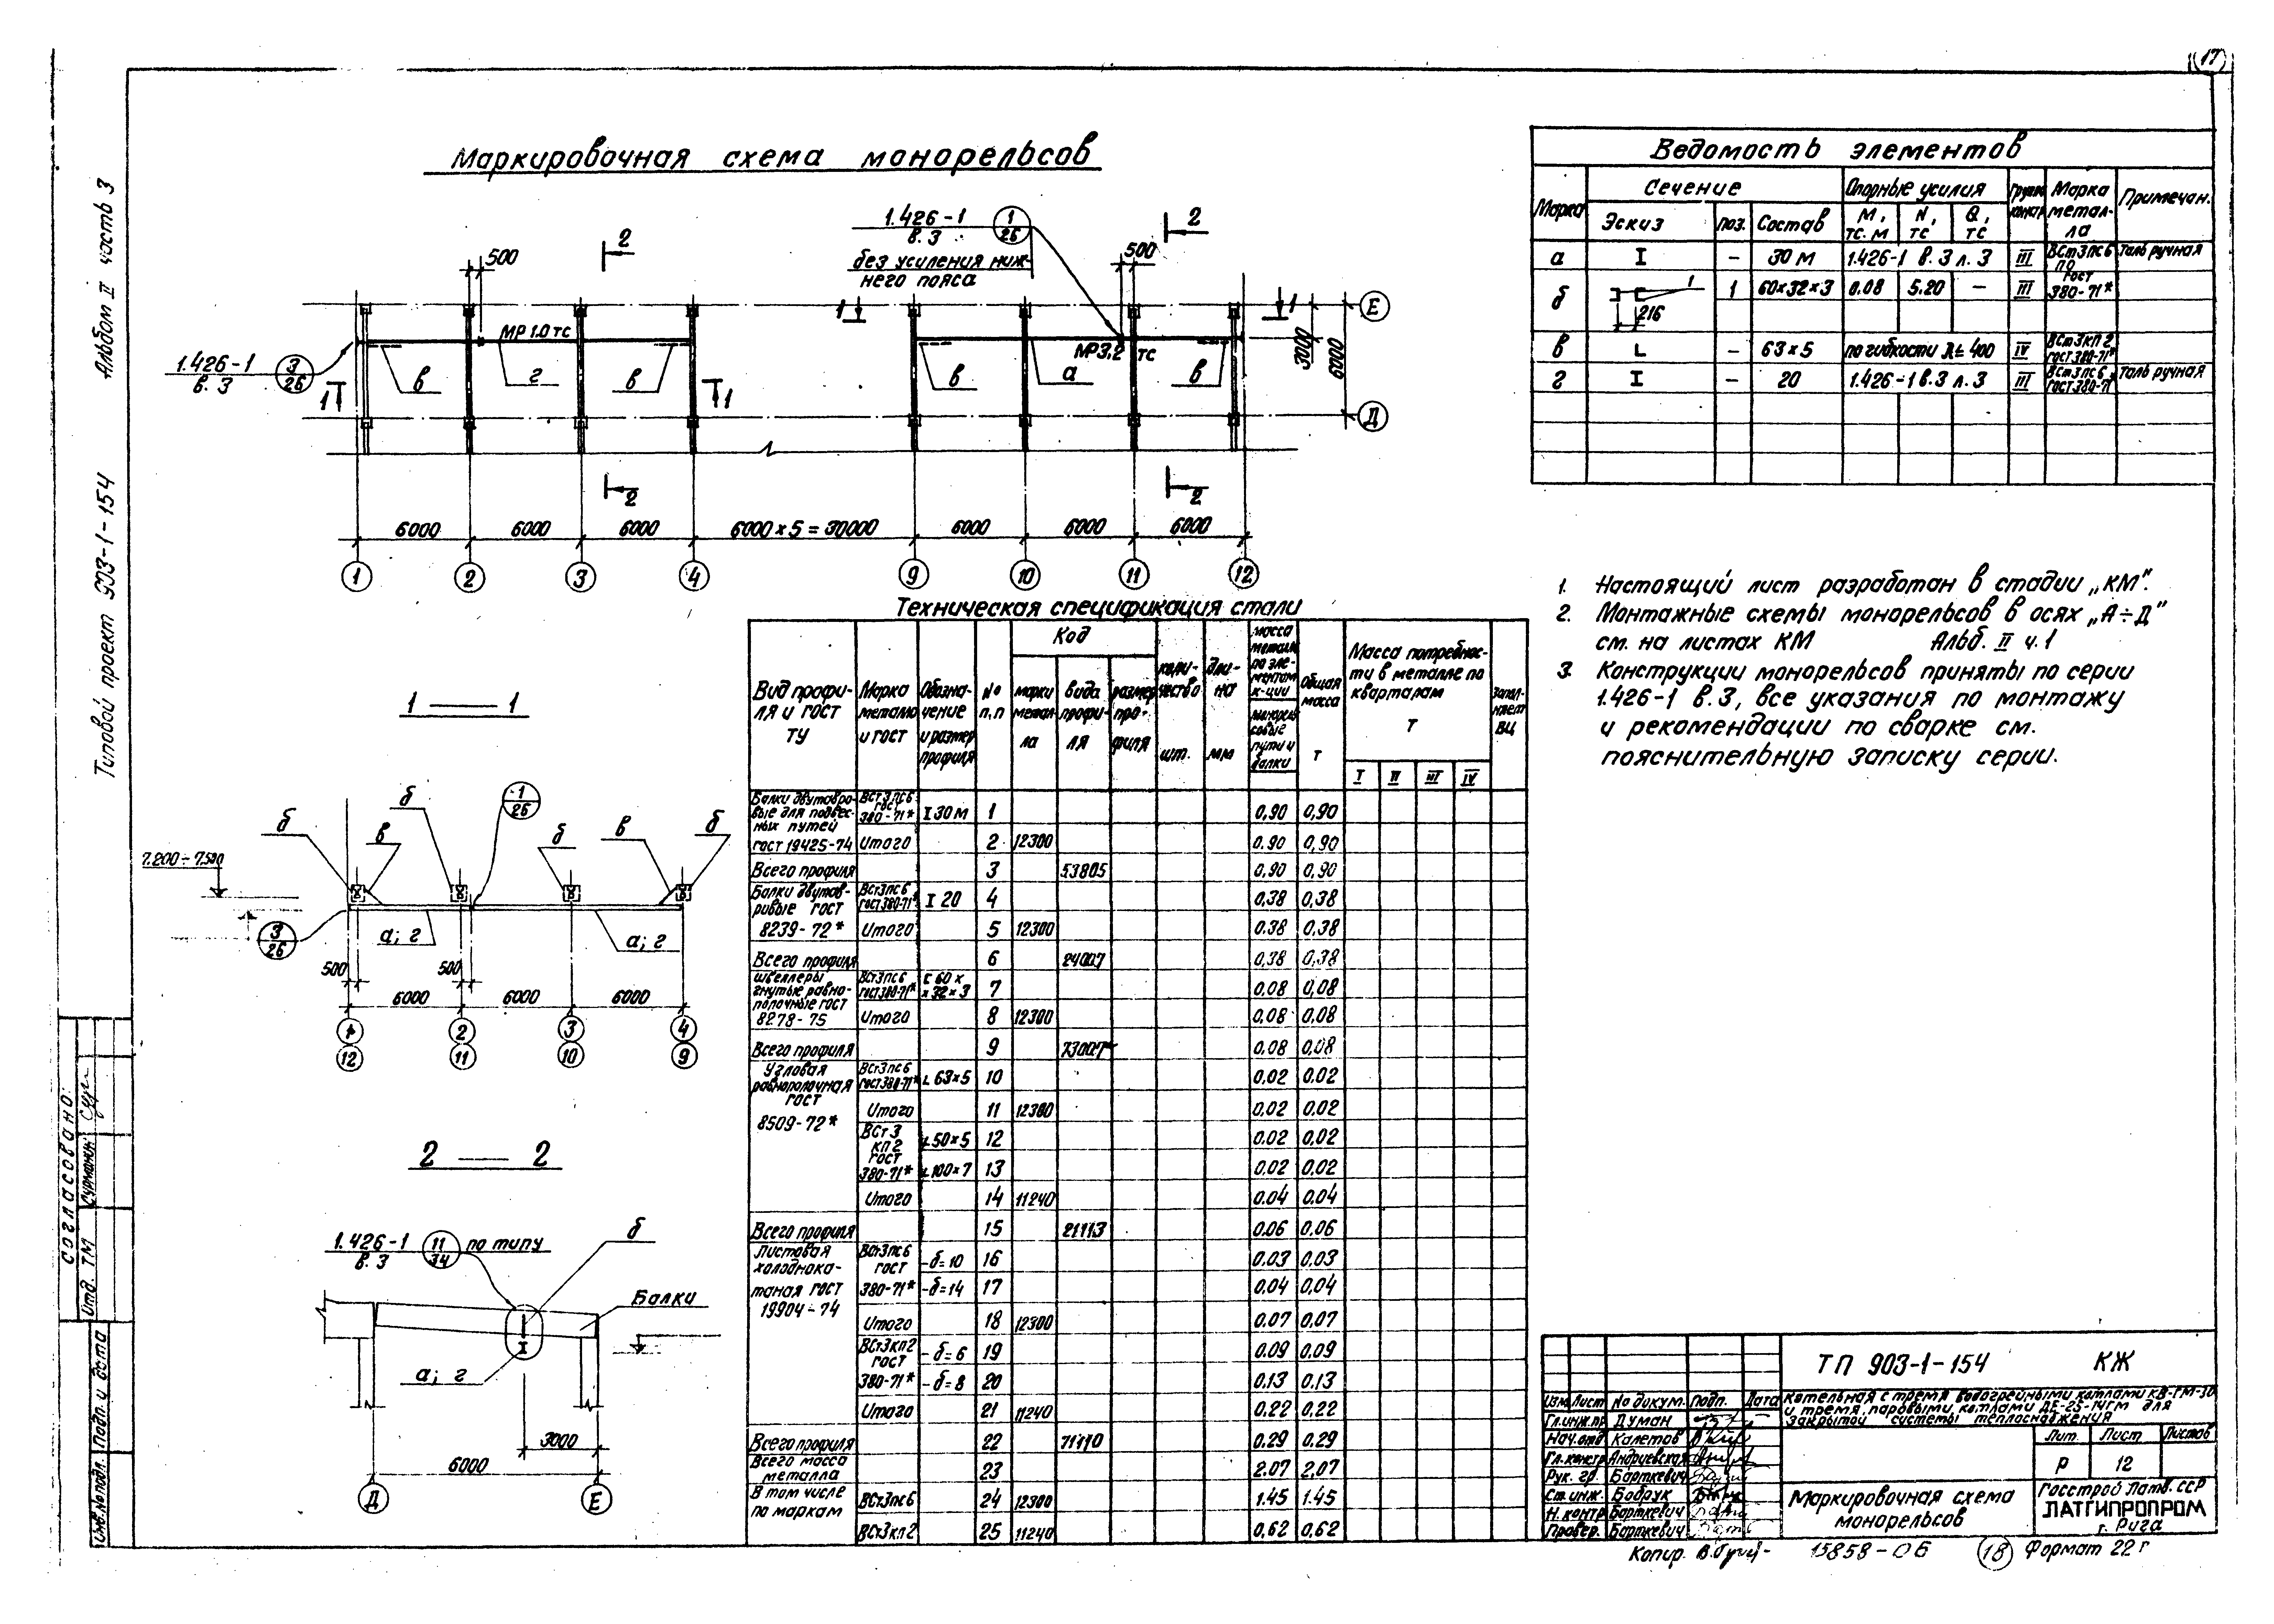 17
Альбом II часть 3
Типовой проект 903-1-154
Маркировочная схема монорельсов
1.426-1 в.3 1/26
без усиления ниж-
него пояса
500
2
2
500
1
1
Е
МР 1.0 тс
МР3,2 тс
1.426-1 в.3 3/26
в
г
в
в
а
в
3000
6000
1
1
Д
2
2
6000
6000
6000
6000 x 5 = 30000
6000
6000
6000
1
2
3
4
9
10
11
12
Ведомость элементов
Марка
Сечение
Опорные усилия
Марка метал-ла
Примечан.
Эскиз
поз.
Состав
М, тс.м
N, тс
Q, тс
а I – 30 м 1.426-1 в.3 л.3 III ВСт3пс6 по ГОСТ 380-71* Таль ручная
б 216 1 1 60x32x3 0.08 5.20 – III
в L – 63x5 по гибкости λ≤400 IV ВСт3кп2 ГОСТ 380-71*
г I – 20 1.426-1 в.3 л.3 III ВСт3пс6 ГОСТ 380-71* Таль ручная
1. Настоящий лист разработан в стадии „КМ".
2. Монтажные схемы монорельсов в осях „А÷Д"
см. на листах КМ Альб. II ч.1
3. Конструкции монорельсов приняты по серии
1.426-1 в.3, все указания по монтажу
и рекомендации по сварке см.
пояснительную записку серии.
1 — 1
б
в
б
1/26
б
в
б
7.200 ÷ 7.500
3/26
а; г
а; г
500
500
6000
6000
6000
1
2
3
4
12
11
10
9
2 — 2
1.426-1 в.3 11/34 по типу
б
Балки
а; г
3000
6000
Д
Е
Техническая спецификация стали
Вид профи-ля и ГОСТ ТУ
Марка металла и ГОСТ
Обозна-чение и размер профиля
№ п.п
Код
марки метал-ла
вида профи-ля
размер про-филя
коли-чество шт.
дли-на мм
масса металла по эле-ментам к-ции
монорель-совые пути и балки
Общая масса т
Масса потребнос-ти в металле по кварталам т
I II III IV
Запол-няет ВЦ
Балки двутавро-вые для подвес-ных путей ГОСТ 19425-74 ВСт3пс6 ГОСТ 380-71* I 30 М 1 0,90 0,90
Итого 2 12300 0.90 0,90
Всего профиля 3 53805 0,90 0,90
Балки двутав-ровые ГОСТ 8239-72* ВСт3пс6 ГОСТ 380-71* I 20 4 0,38 0,38
Итого 5 12300 0.38 0.38
Всего профиля 6 24007 0,38 0,38
Швеллеры гнутые равно-полочные ГОСТ 8278-75 ВСт3пс6 ГОСТ 380-71* С 60 x x 32 x 3 7 0,08 0,08
Итого 8 12300 0,08 0,08
Всего профиля 9 73007 0,08 0,08
Угловая равнополочная ГОСТ 8509-72* ВСт3пс6 ГОСТ 380-71* L 63x5 10 0,02 0.02
Итого 11 12300 0.02 0.02
ВСт3 кп2 ГОСТ 380-71* L 50x5 12 0.02 0,02
L 100x7 13 0.02 0,02
Итого 14 11240 0.04 0.04
Всего профиля 15 21113 0.06 0.06
Листовая холоднока-таная ГОСТ 19904-74 ВСт3пс6 ГОСТ 380-71* -δ=10 16 0.03 0,03
-δ=14 17 0.04 0,04
Итого 18 12300 0.07 0,07
ВСт3кп2 ГОСТ 380-71* -δ=6 19 0.09 0.09
-δ=8 20 0.13 0.13
Итого 21 11240 0.22 0,22
Всего профиля 22 71110 0.29 0.29
Всего масса металла 23 2.07 2,07
В том числе по маркам ВСт3пс6 24 12300 1.45 1.45
ВСт3кп2 25 11240 0,62 0,62
Согласовано:
Отд. ТМ Сурманин
Инв. № подл. Подп. и дата
ТП 903-1-154 КЖ
Котельная с тремя водогрейными котлами КВ-ГМ-30
и тремя паровыми котлами ДЕ-25-14ГМ для
закрытой системы теплоснабжения
Изм. Лист № докум. Подп. Дата
Гл.инж.пр Думан
Нач.отд Калетов
Гл.констр Андриевская
Рук. гр. Барткевич
Ст.инж. Бобрук
Н.контр Барткевич
Провер. Барткевич
Лит. Лист Листов
Р 12
Маркировочная схема
монорельсов
Госстрой Латв. ССР
ЛАТГИПРОПРОМ
г. Рига
Копир. 15858-06 18 Формат 22 г